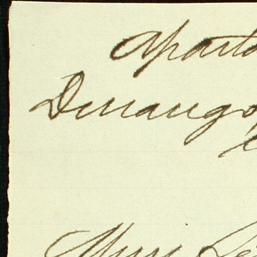 Aparta
Durango,
Miss Le